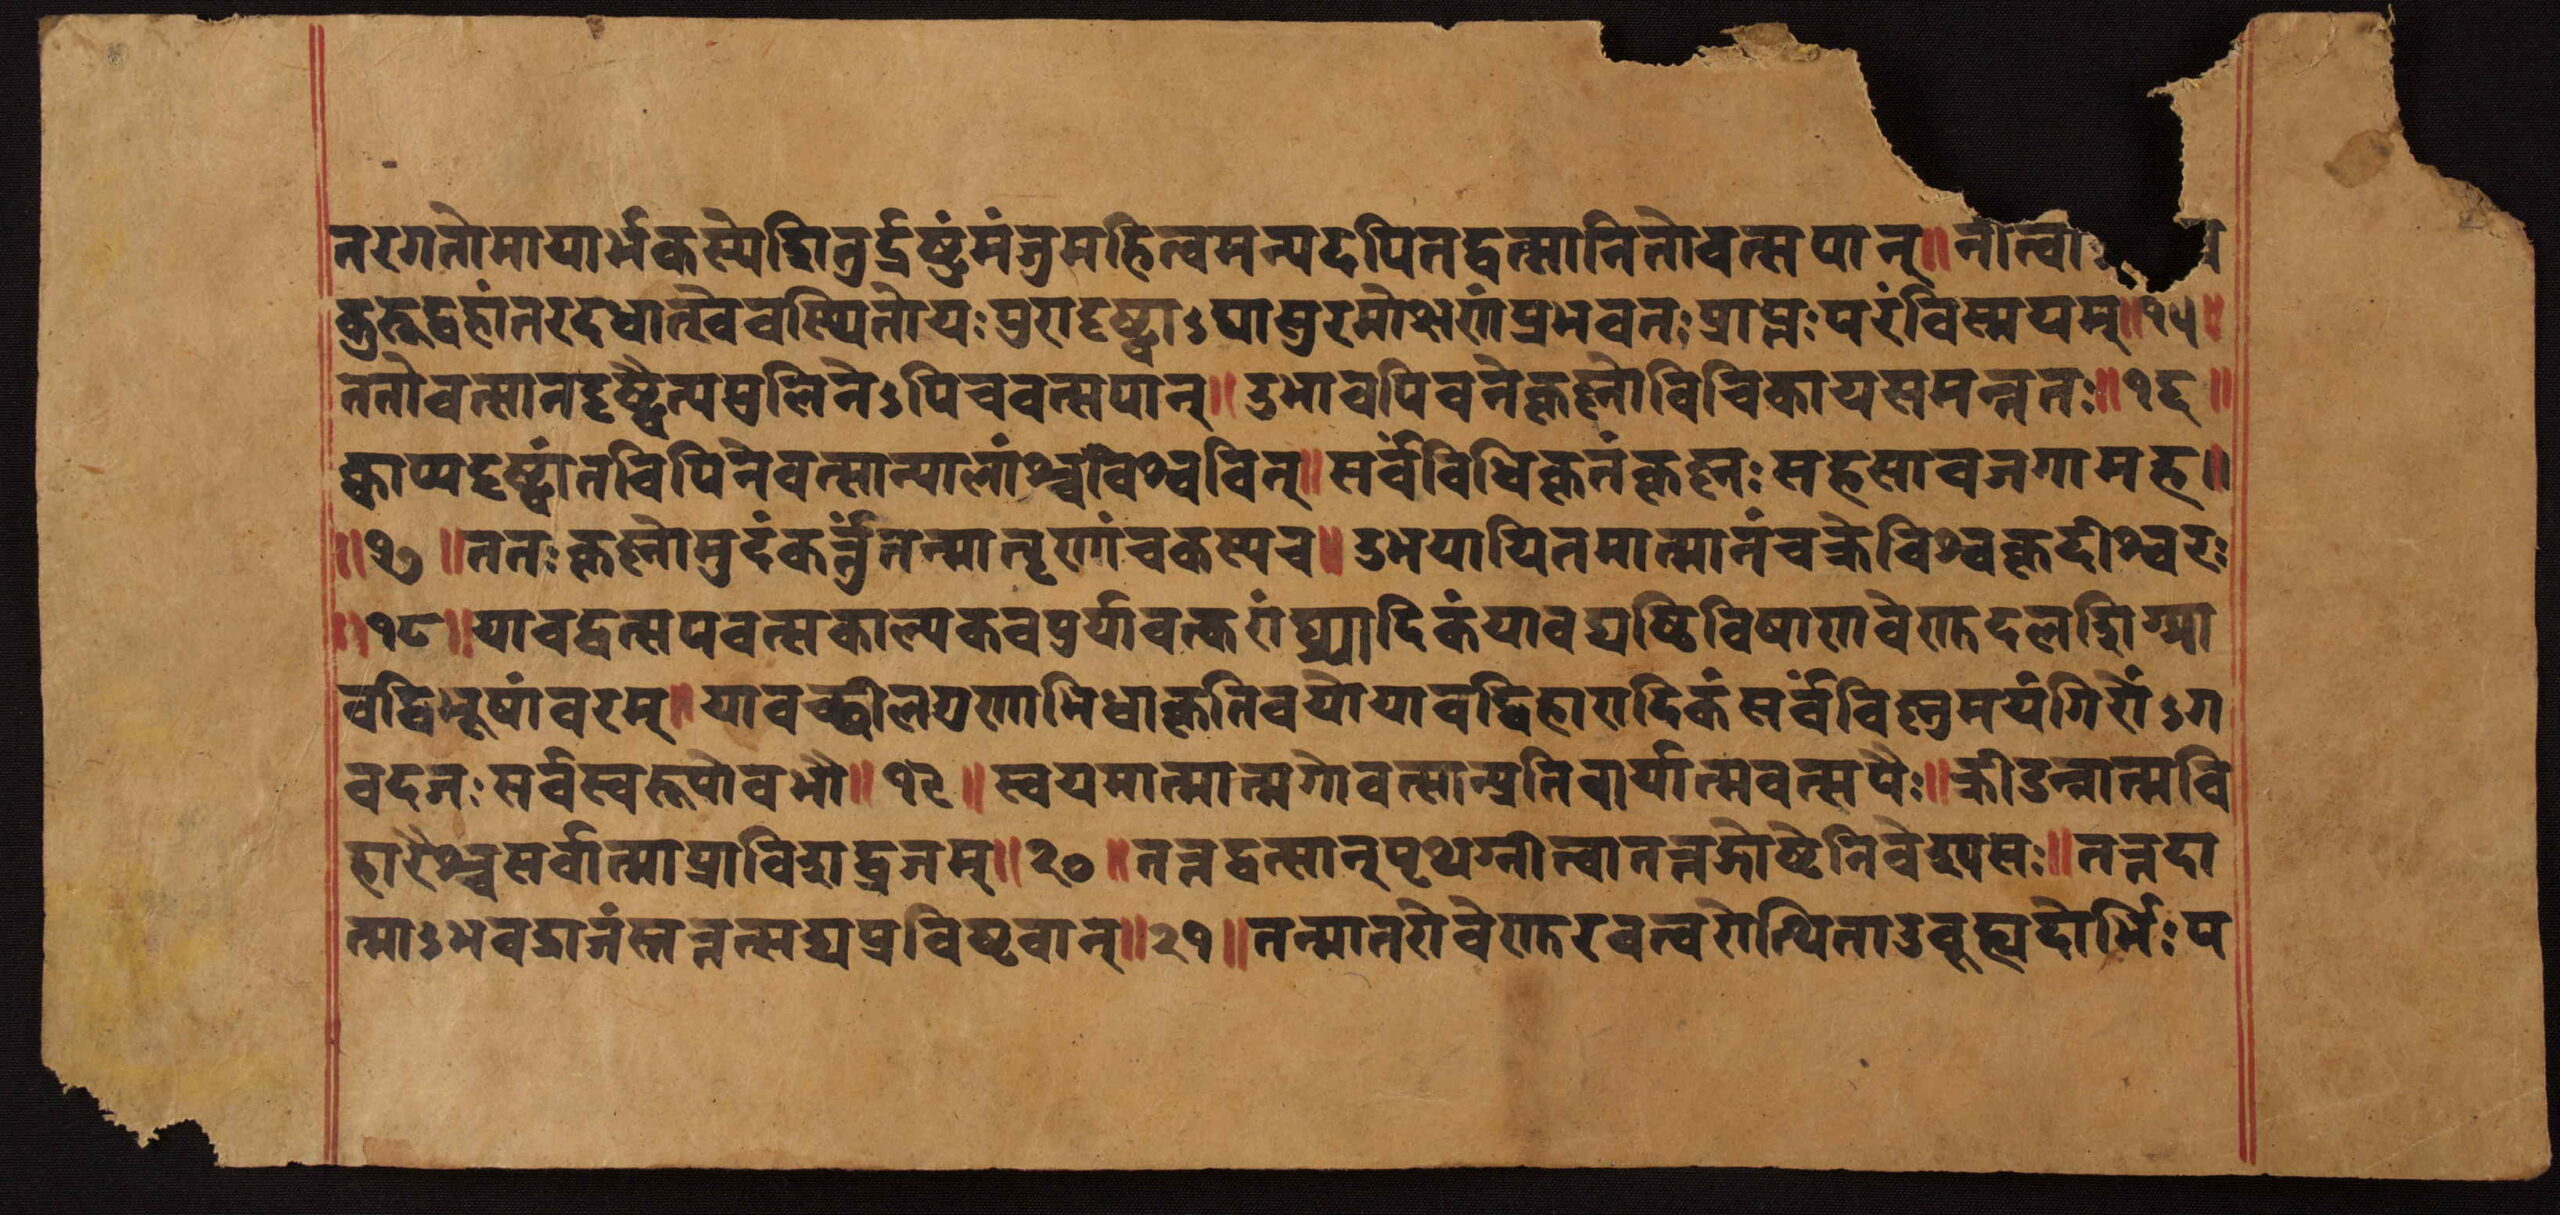 न्तरगतो मायार्भकस्येशितुर्द्रष्टुं मंजु महित्वमन्यदपि तद्वत्सानितो वत्सपान् ॥ नीत्वा
कुरूद्वहांतरदधात्खेवस्थितो यः पुरा दृष्ट्वाऽघासुरमोक्षणं प्रभवतः प्राप्तः परं विस्मयम् ॥ १५ ॥
ततो वत्सानदृष्ट्वैत्य पुलिनेऽपि च वत्सपान् ॥ उभावपि वने कृष्णो विचिकाय समन्ततः ॥ १६ ॥
क्वाप्यदृष्ट्वांतर्विपिने वत्सान्पालांश्च विश्ववित् ॥ सर्वं विधिकृतं कृष्णः सहसावजगाम ह ॥
॥ १७ ॥ ततः कृष्णो मुदं कर्तुं तन्मातॄणां च कस्य च ॥ उभयायितमात्मानं चक्रे विश्वकृदीश्वरः
॥ १८ ॥ यावद्वत्सपवत्सकाल्पकवपुर्यावत्करांघ्र्यादिकं यावद्यष्टिविषाणवेणुदलशिग्या
वद्विभूषांवरम् ॥ यावच्छीलगुणाभिधाकृतिवयो यावद्विहारादिकं सर्वं विष्णुमयं गिरोंऽग
वदजः सर्वस्वरूपो वभौ ॥ १९ ॥ स्वयमात्मात्मगोवत्सान्प्रतिवार्यात्मवत्सपैः ॥ क्रीडन्नात्मवि
हारैश्च सर्वात्मा प्राविशद्व्रजम् ॥ २० ॥ तत्तद्वत्सान्पृथग्नीत्वा तत्तद्गोष्ठे निवेश्य सः ॥ तत्तदा
त्माऽभवद्राजंस्तत्तत्सद्म प्रविष्टवान् ॥ २१ ॥ तन्मातरो वेणुरवत्वरोत्थिता उत्थाप्य दोर्भिः प